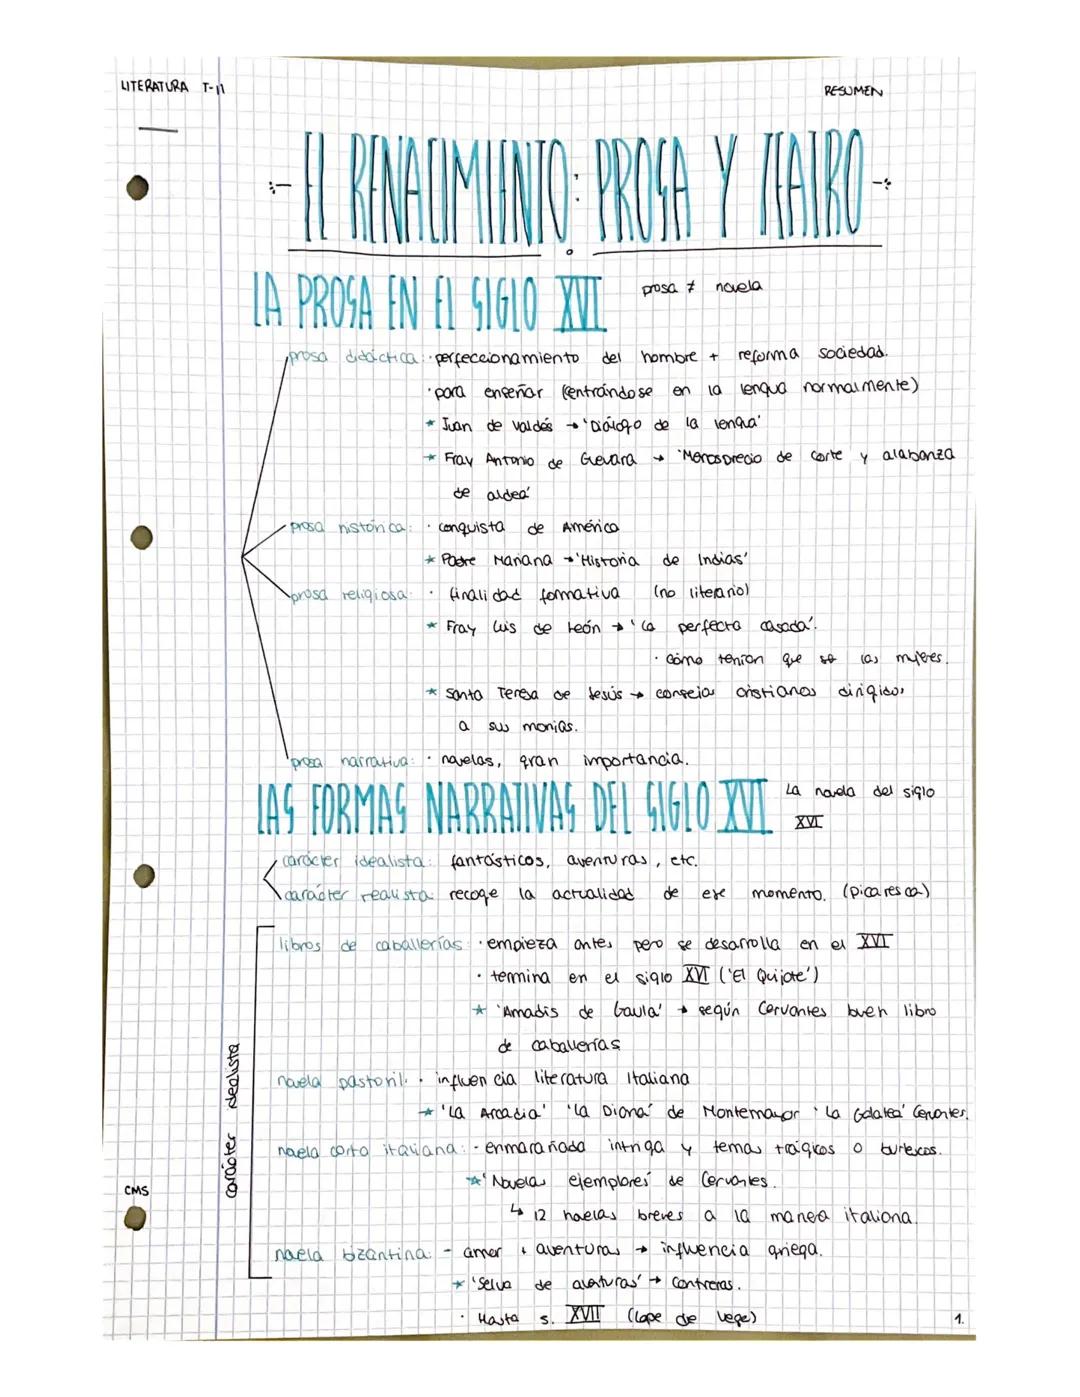 LITERATURA T-11
RESUMEN
El RENACIMIENTO: PROSA Y TEATRO
LA PROSA EN El SIGLO XVI
prosa ≠ novela
prosa didáctica: · perfeccionamiento del hombre + reforma sociedad.
· para enseñar (centrándose en la lengua normalmente)
* Juan de Valdés → 'Diálogo de la lengua'
* Fray Antonio de Guevara → 'Menosprecio de corte y alabanza
de aldea'
prosa histórica: · conquista de América
* Padre Mariana → 'Historia de Indias'
prosa religiosa: · finalidad formativa (no literario)
* Fray Luis de León → 'La perfecta casada'.
· cómo tenían que ser las mujeres.
* Santa Teresa de Jesús → consejos cristianos dirigidos
a sus monjas.
prosa narrativa: · novelas, gran importancia.
LAS FORMAS NARRATIVAS DEL SIGLO XVI
La novela del siglo
XVI
carácter idealista: fantásticos, aventuras, etc.
carácter realista: recoge la actualidad de ese momento. (picaresca)
carácter idealista
libros de caballerías: · empieza antes pero se desarrolla en el XVI
· termina en el siglo XVI ('El Quijote')
* 'Amadis de Gaula' → según Cervantes buen libro
de caballerías
novela pastoril: · influencia literatura italiana
* 'La Arcadia' 'La Diana' de Montemayor 'La Galatea' Cervantes.
novela corta italiana: · enmarañada intriga y temas trágicos o burlescos.
* 'Novelas ejemplares' de Cervantes.
↳ 12 novelas breves a la manera italiana.
CMS
novela bizantina: - amor + aventuras → influencia griega.
* 'Selva de aventuras' → Contreras.
· Hasta s. XVII (Lope de Vega)
1.